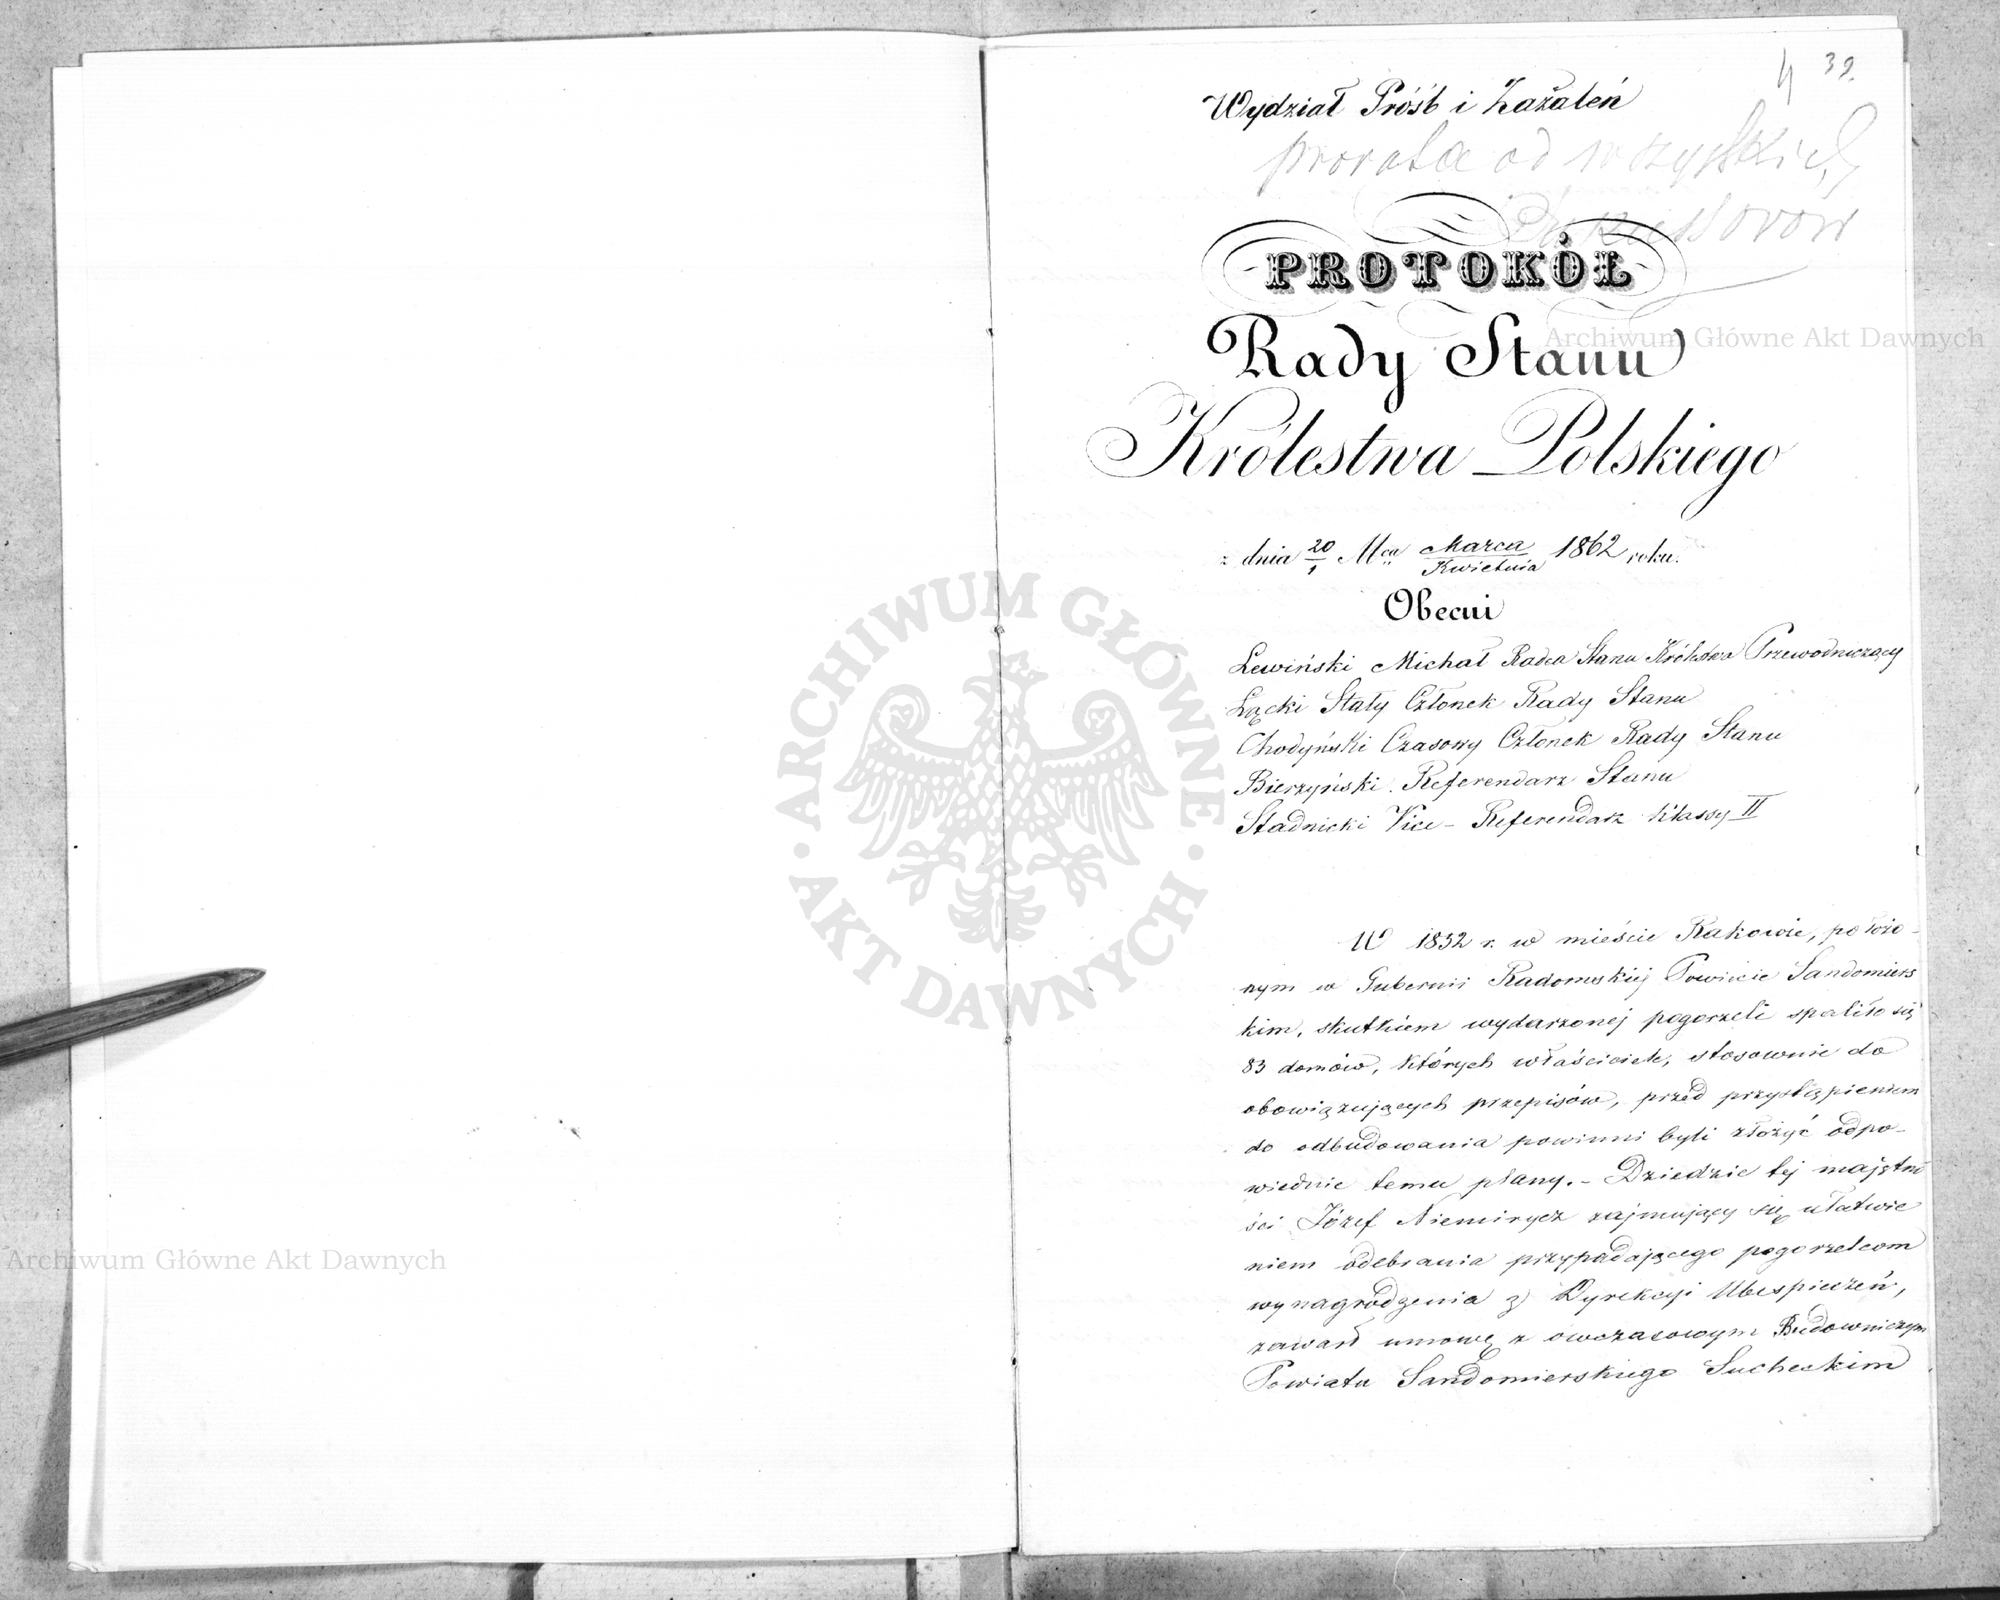 4 39.
Wydział Próśb i Zażaleń
prorata od wszystkich
PROTOKÓŁ
Rady Stanu
Królestwa Polskiego
z dnia 20/1 Mca Marca/Kwietnia 1862 roku.
Obecni
Lewiński Michał Radca Stanu Królestwa Przewodniczący
Łącki Stały Członek Rady Stanu
Chodyński Czasowy Członek Rady Stanu
Bierzyński Referendarz Stanu
Stadnicki Vice-Referendarz klassy II
W 1852 r. w mieście Rakowie, położo-
nym w Gubernii Radomskiej Powiecie Sandomiers
kim, skutkiem wydarzonej pogorzeli spaliło się
83 domów, których właściciele, stosownie do
obowiązujących przepisów, przed przystąpieniem
do odbudowania powinni byli złożyć odpo-
wiednie temu plany.- Dziedzic tej majętno
ści Józef Niemirycz zajmujący się ułatwie
niem odebrania przypadającego pogorzelcom
wynagrodzenia z Dyrekcyi Ubespieczeń,
zawarł umowę z owczasowym Budowniczym
Powiatu Sandomierskiego Sucheckim
Archiwum Główne Akt Dawnych
Archiwum Główne Akt Dawnych
ARCHIWUM GŁÓWNE
AKT DAWNYCH